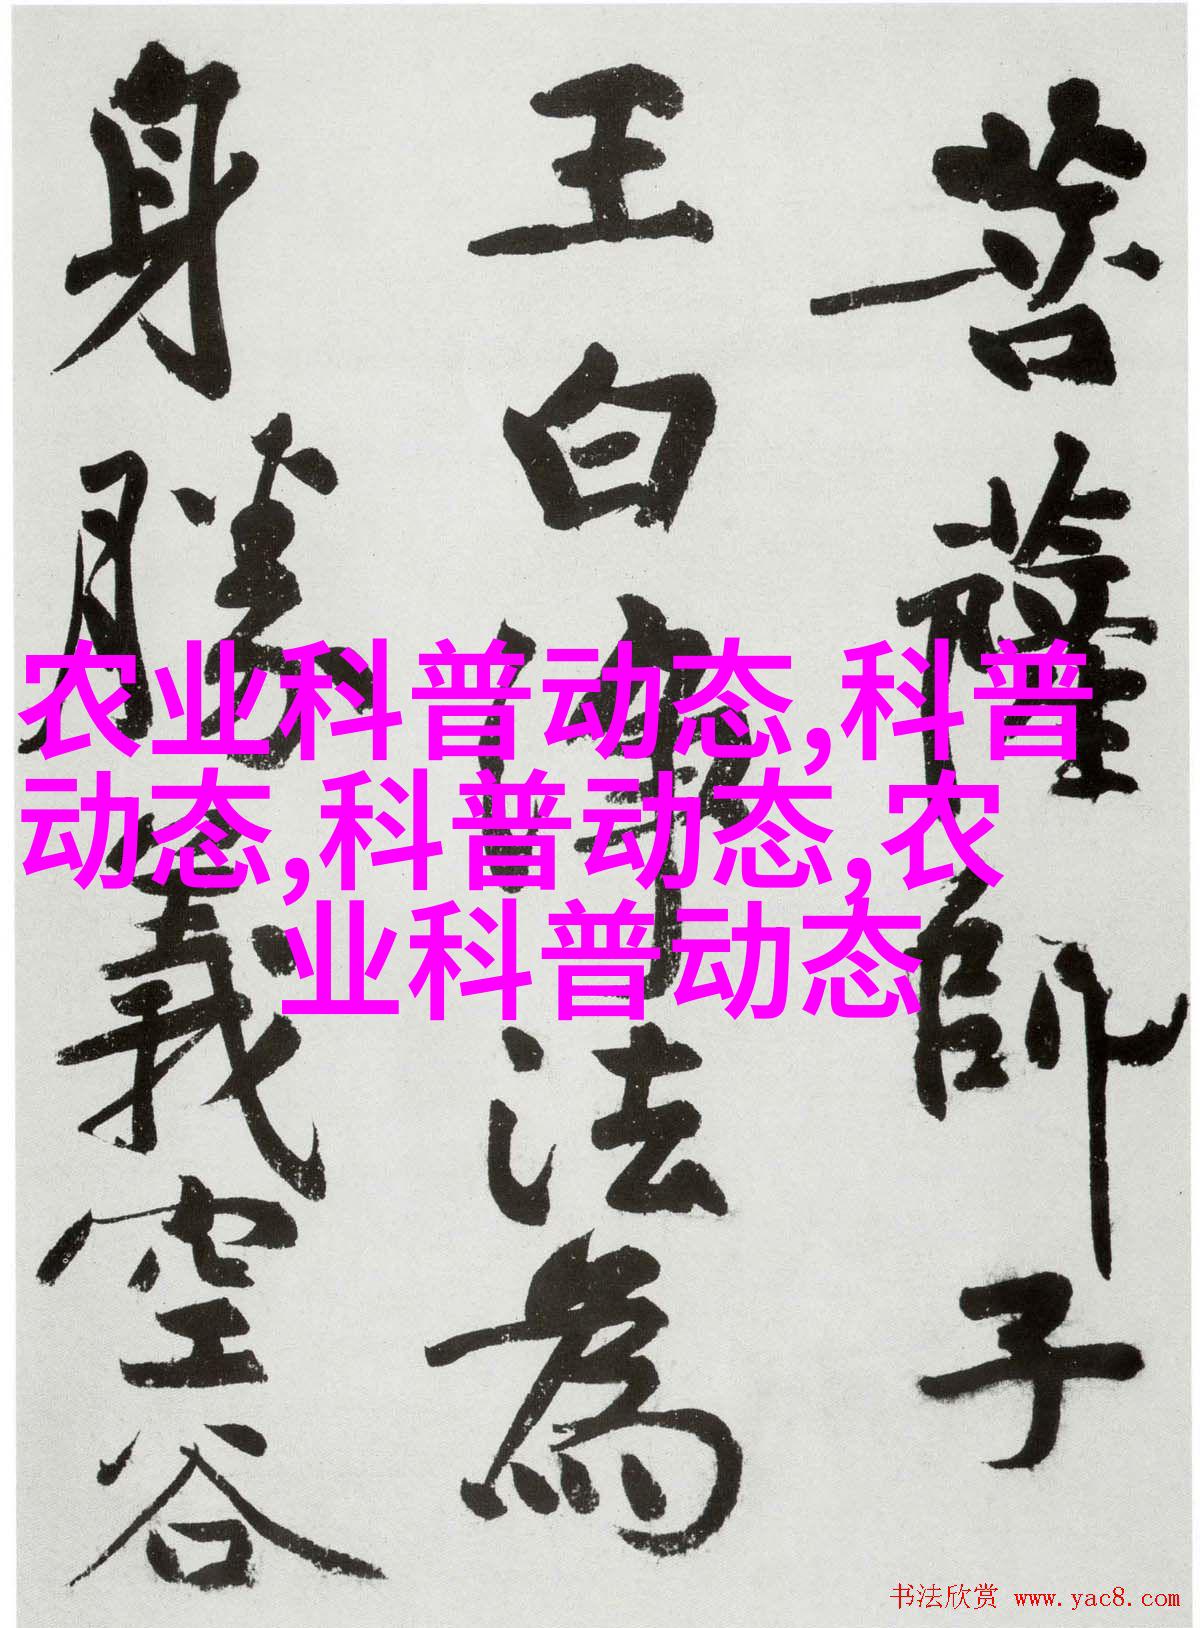 菩薩師子
王白淨法為
身勝義空谷
农业科普动态,科普
动态,科普动态,农
业科普动态
书法欣赏 www.yac8.com